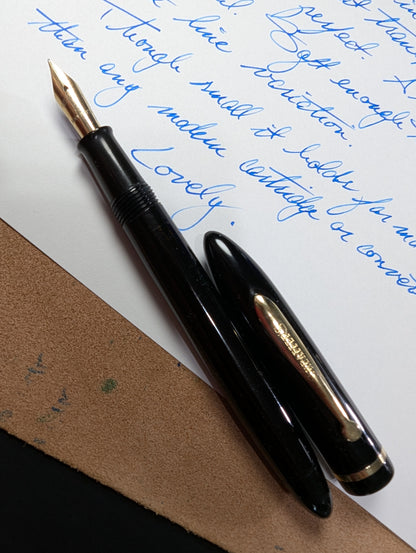 it
perfect.
Soft enough
line variation.
Though small it holds far
than any modern cartridge or conver
Lovely.
SHEAFFER'S